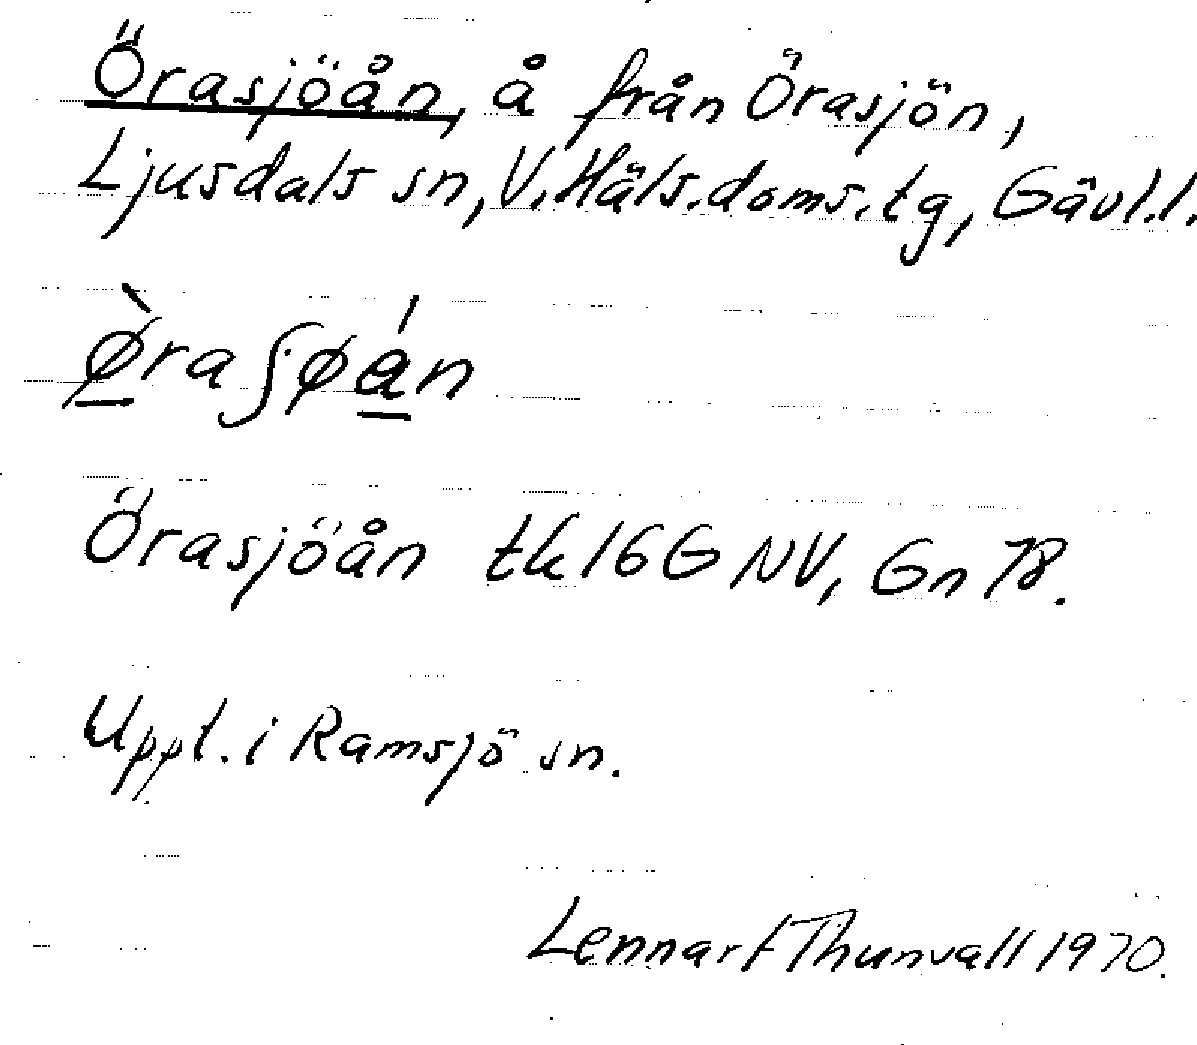 Örasjöån, å från Örasjön,
Ljusdals sn, V. Häls. doms. tg, Gävl. l.
ø̀raʃøán
Örasjöån tk 16G NV, Gn 78.
Uppt. i Ramsjö sn.
Lennart Thunvall 1970.